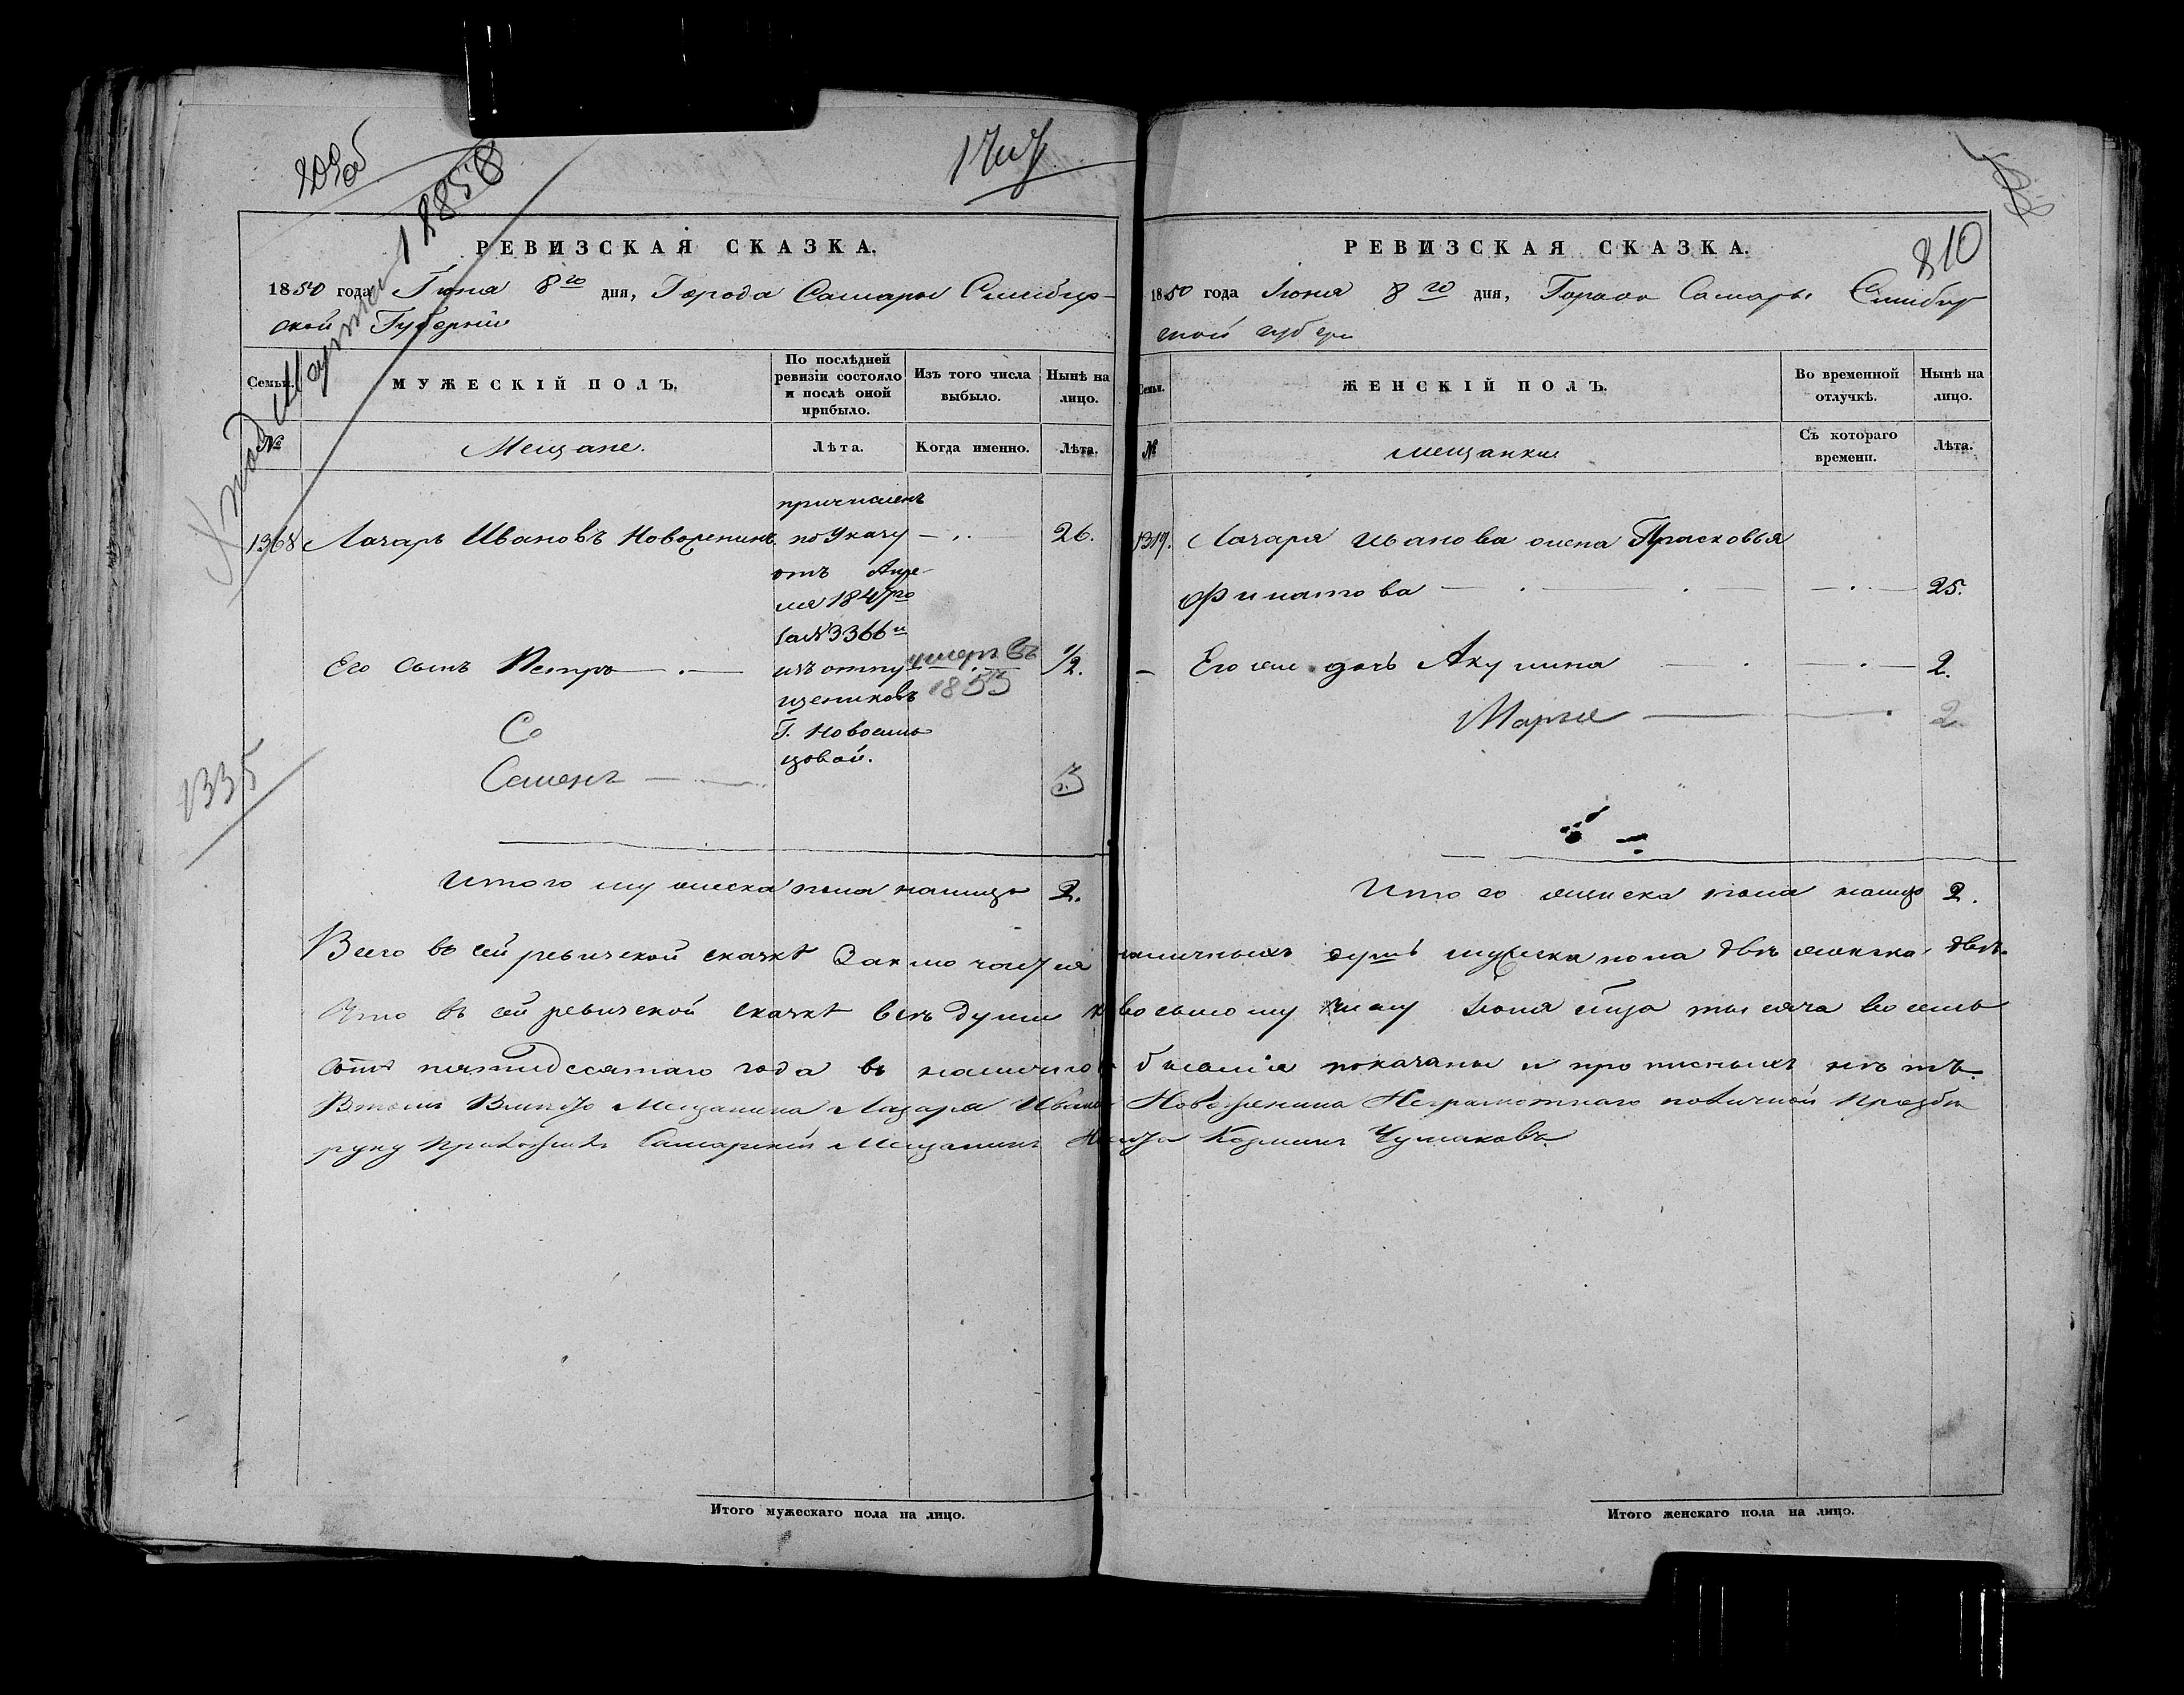 809об
1858
1707
РЕВИЗСКАЯ СКАЗКА.
1850 года Іюня 8го дня, Города Самары Симбир-
ской Губерніи
Семьи. МУЖЕСКІЙ ПОЛЪ. По послѣдней ревизіи состояло и послѣ оной прибыло. Изъ того числа выбыло. Нынѣ на лицо.
№ Мещане. Лѣта. Когда именно. Лѣта.
1368 Лазарь Ивановъ Новоженинъ. 26.
причисленъ
по Указу
отъ Апре-
ля 1847го
за №3366и
изъ отпу-
щениковъ
Г. Новосиль
цовой.
Его сынъ Петръ умеръ въ 1855 1/2.
Се
Семенъ 3
1335
Итого мужеска пола налицо 2.
РЕВИЗСКАЯ СКАЗКА.
810
1850 года Іюня 8го дня, Города Самары Симбир
ской губер
Семьи. ЖЕНСКІЙ ПОЛЪ. Во временной отлучкѣ. Нынѣ на лицо.
№ мещанки Съ котораго времени. Лѣта.
Лазаря Иванова жена Прасковья
Филатова 25.
Его же дочь Акулина 2.
Марья 2.
Итого женска пола налицо 2.
Всего въ сей ревизской сказкѣ Заключается наличныхъ душъ мужеска пола двѣ женска двѣ.
Что въ сей ревизской сказкѣ всѣ души къ восьмому числу Іюня мца тысяча восемь
сотъ пятидесятаго года въ наличности бывшія показаны и прописныхъ нѣтъ.
Въ томъ Вмѣсто Мещанина Лазаря Иванова Новоженина Неграмотнаго поличной прозбѣ
руку приложилъ Самарскій Мещанинъ Козминъ Чумаковъ
Итого мужескаго пола на лицо.
Итого женскаго пола на лицо.